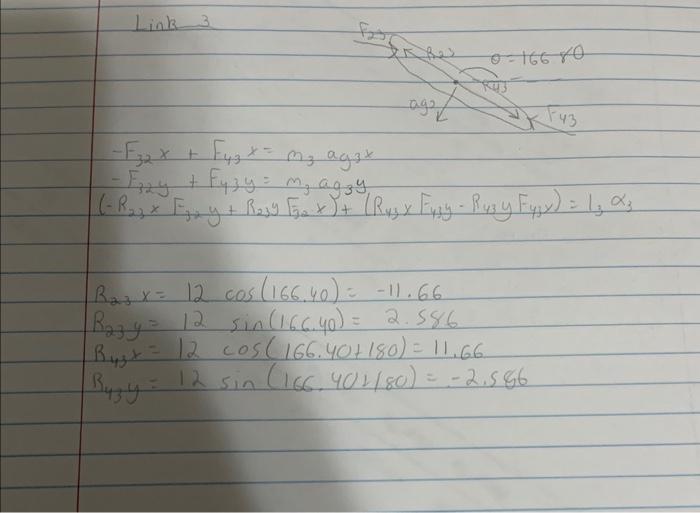 Link 3
F23
R23
θ=166.80
R43
ag3
F43
-F32x + F43x = m3 ag3x
-F32y + F43y = m3 ag3y
(-R23x F32y + R23y F32x) + (R43x F43y - R43y F43x) = I3 α3
R23x = 12 cos(166.40) = -11.66
R23y = 12 sin(166.40) = 2.586
R43x = 12 cos(166.40+180) = 11.66
R43y = 12 sin(166.40+180) = -2.586